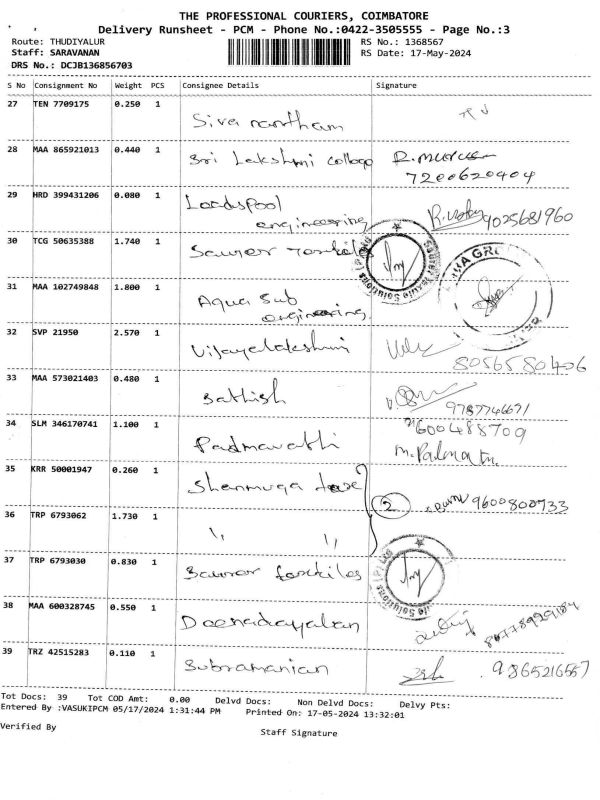 THE PROFESSIONAL COURIERS, COIMBATORE
Delivery Runsheet - PCM - Phone No.:0422-3505555 - Page No.:3
Route: THUDIYALUR
Staff: SARAVANAN
DRS No.: DCJB136856703
RS No.: 1368567
RS Date: 17-May-2024
S No Consignment No Weight PCS Consignee Details Signature
27 TEN 7709175 0.250 1
Siva nantham
28 MAA 865921013 0.440 1 Sri Lakshmi college
7200620404
29 HRD 399431206 0.080 1 Loadspool
engineering 9025681960
30 TCG 50635388 1.740 1
31 MAA 102749848 1.800 1 Aqua Sub
engineering
32 SVP 21950 2.570 1 Vijayalakshmi
8056580406
33 MAA 573021403 0.480 1 Sathish
9787746671
34 SLM 346170741 1.100 1 9600488709
Padmavathi
35 KRR 50001947 0.260 1 Shanmuga
2 9600800733
36 TRP 6793062 1.730 1
" "
37 TRP 6793030 0.830 1
38 MAA 600328745 0.550 1
Deenadayalan
39 TRZ 42515283 0.110 1 Subramanian
9865216557
Tot Docs: 39 Tot COD Amt: 0.00 Delvd Docs: Non Delvd Docs: Delvy Pts:
Entered By :VASUKIPCM 05/17/2024 1:31:44 PM Printed On: 17-05-2024 13:32:01
Verified By
Staff Signature